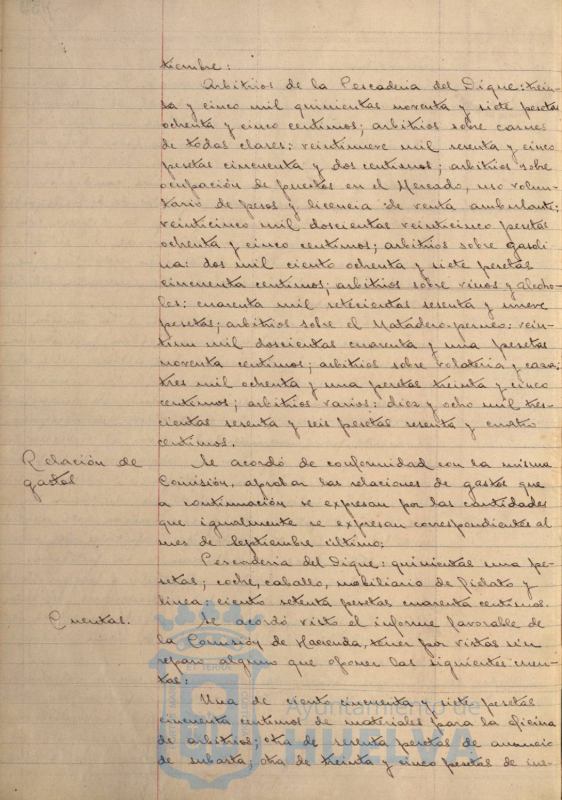 tiembre:
Arbitrios de la Pescaderia del Dique: trein-
ta y cinco mil quinientas noventa y siete pesetas
ochenta y cinco centimos; arbitrios sobre carnes
de todas clases: veintinueve mil sesenta y cinco
pesetas cincuenta y dos centimos; arbitrios sobre
ocupación de puestos en el Mercado, uso volun-
tario de pesos y licencia de venta ambulante:
veinticinco mil doscientas veinticinco pesetas
ochenta y cinco centimos; arbitrios sobre gasoli-
na: dos mil ciento ochenta y siete pesetas
cincuenta centimos; arbitrios sobre vinos y alcoho-
les: cuarenta mil setecientas sesenta y nueve
pesetas; arbitrios sobre el Matadero-perneo: vein-
tiun mil doscientas cuarenta y una pesetas
noventa centimos; arbitrios sobre volateria y caza:
tres mil ochenta y una pesetas treinta y cinco
centimos; arbitrios varios: diez y ocho mil tres-
cientas sesenta y seis pesetas sesenta y cuatro
centimos.
Relación de
gastos
Se acordó de conformidad con la misma
Comisión, aprobar las relaciones de gastos que
a continuación se expresan por las cantidades
que igualmente se expresan correspondientes al
mes de Septiembre último:
Pescaderia del Dique: quinientas una pe-
setas; coche, caballo, mobiliario de Fielato y
linea: ciento setenta pesetas cuarenta centimos.
Cuentas.
Se acordó visto el informe favorable de
la Comisión de Hacienda, tener por vistas sin
reparo alguno que oponer las siguientes cuen-
tas:
Una de ciento cincuenta y siete pesetas
cincuenta centimos de materiales para la oficina
de arbitrios; otra de sesenta pesetas de anuncio
de subasta; otra de treinta y cinco pesetas de ins-
Ayuntamiento de
HUELVA